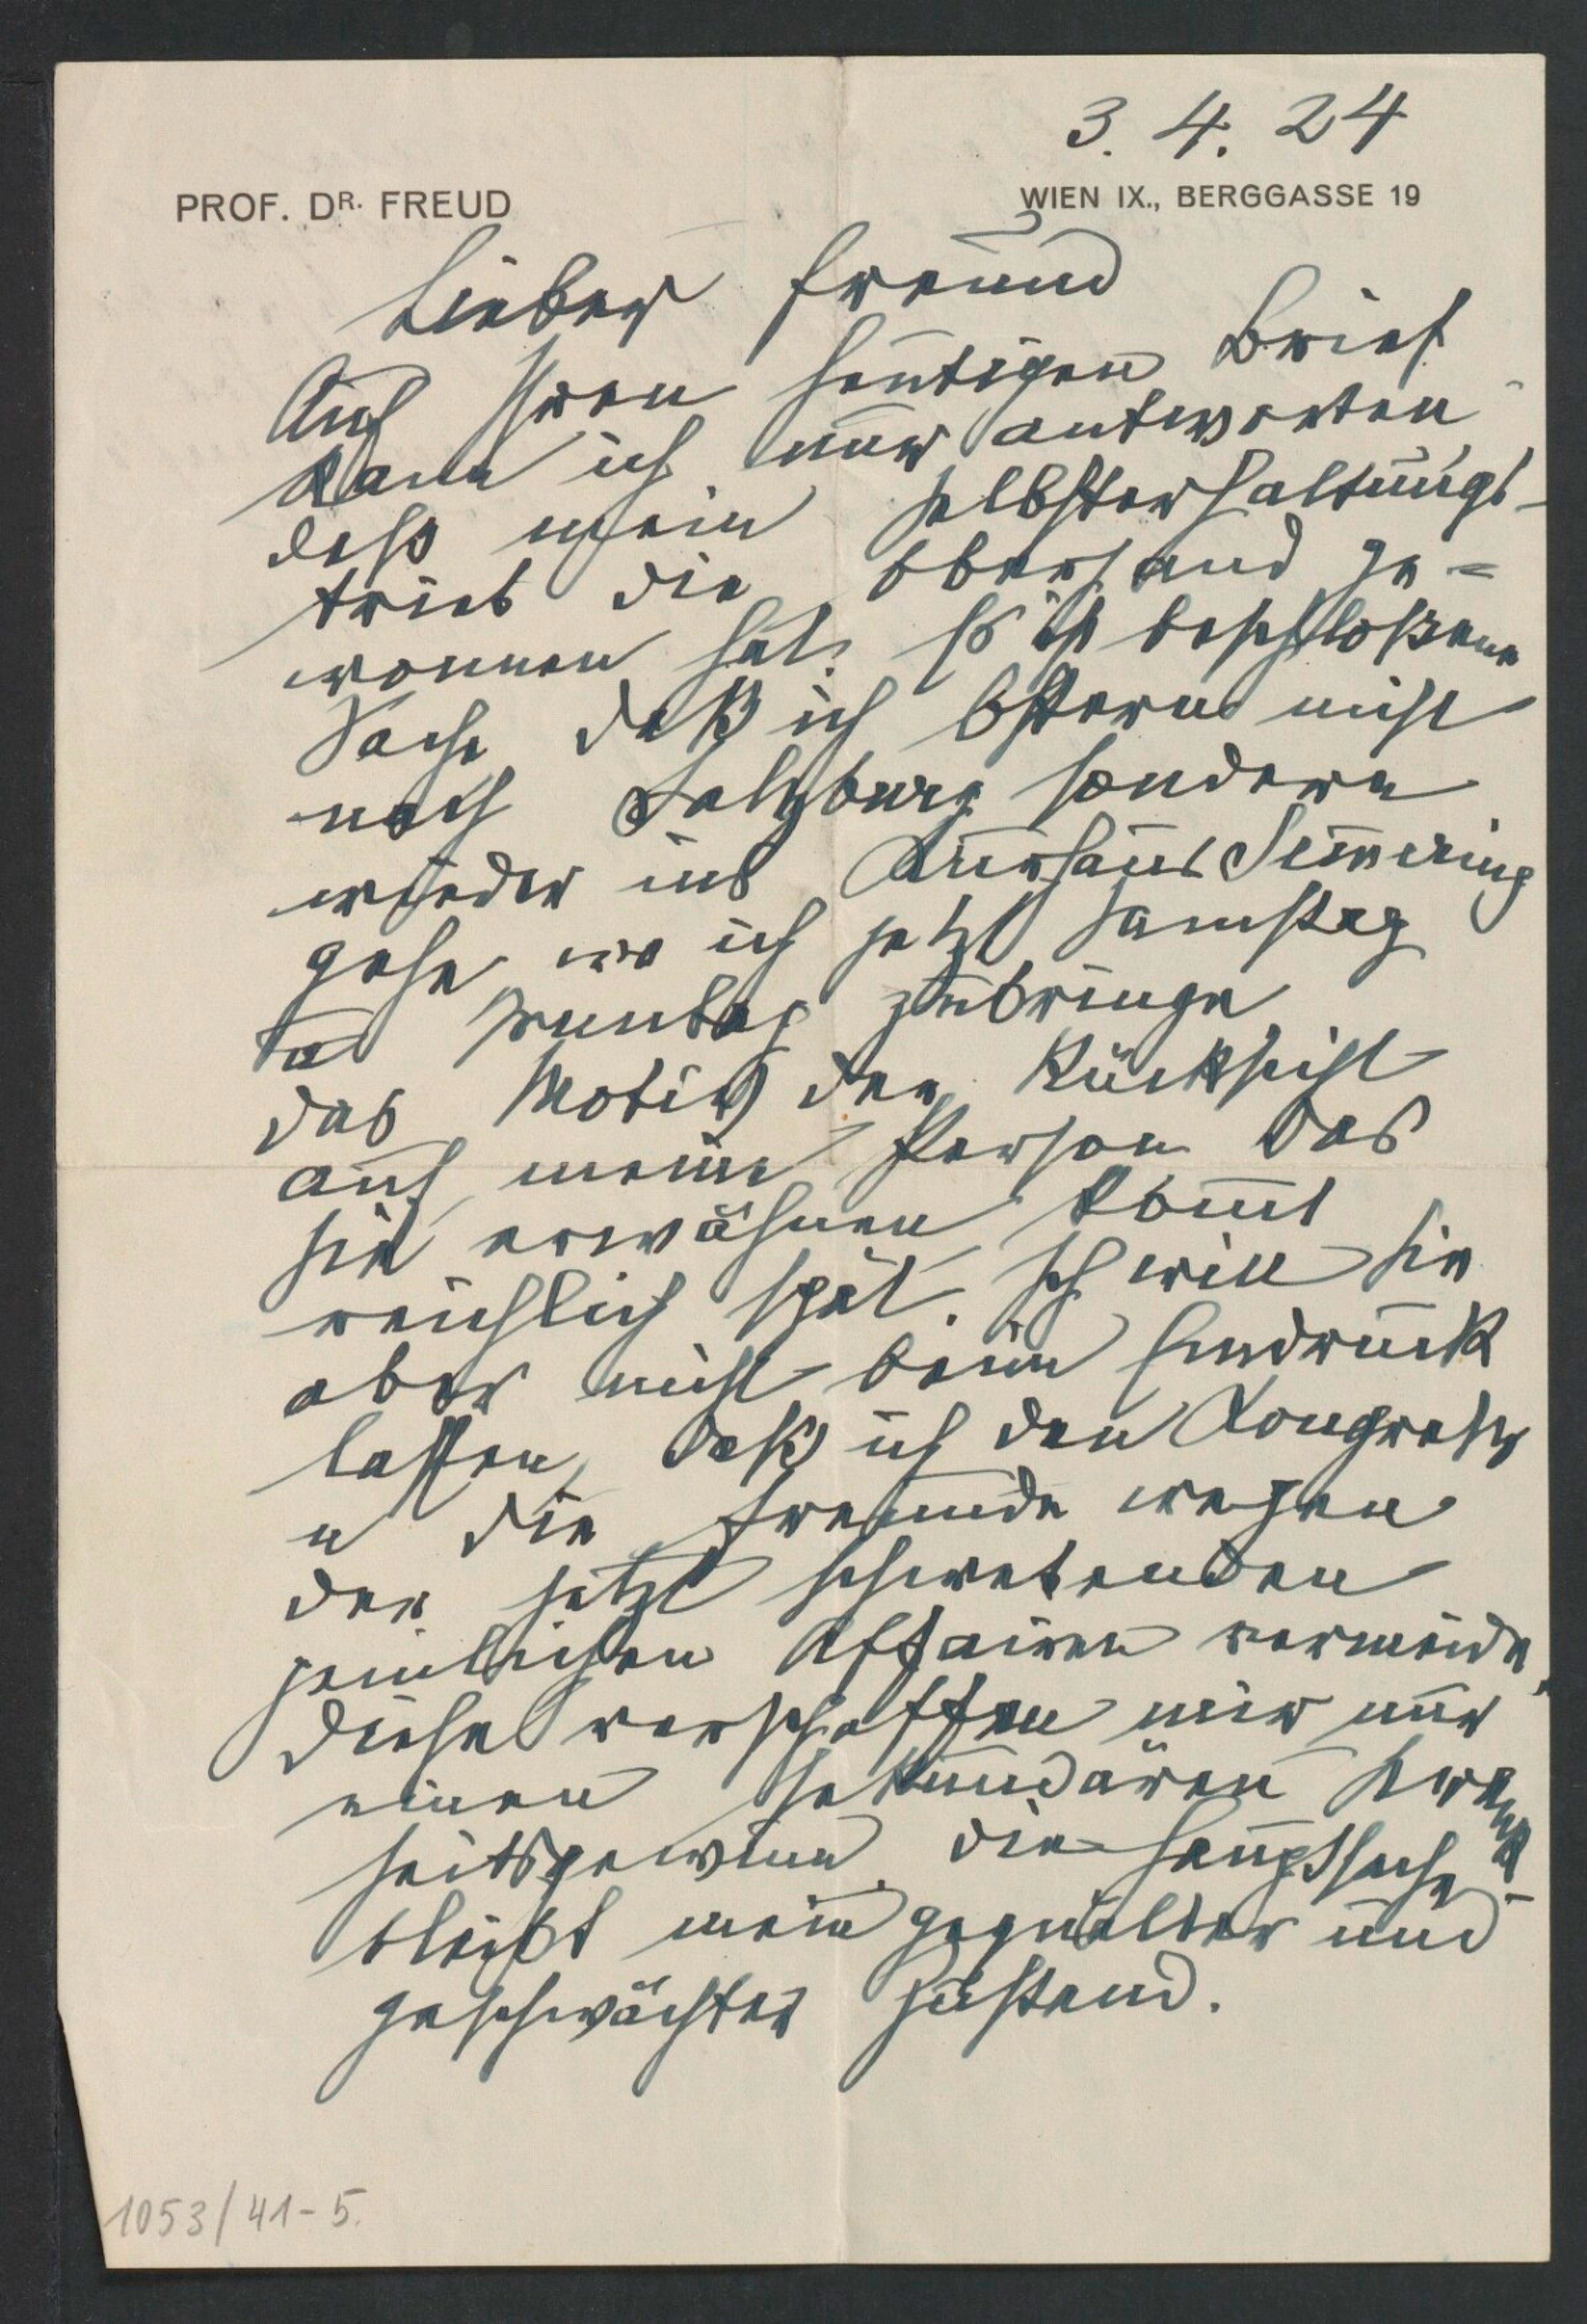 3. 4. 24
PROF. DR. FREUD WIEN IX., BERGGASSE 19
Lieber Freund
Auf Ihren heutigen Brief
kann ich nur antworten
dass mein Selbsterhaltungs-
trieb die Oberhand ge-
wonnen hat. Es ist beschloßene
Sache daß ich Ostern nicht
nach Salzburg sondern
wieder ins Kurhaus Semmering
gehe, wo ich jetzt Samstag
u Sonntag zubringe
Das Motiv der Rücksicht
auf meine Person das
Sie erwähnen kommt
reichlich spät. Ich will Sie
aber nicht beim Eindruck
lassen, daß ich den Kongress
u die Freunde wegen
der jetzt schwebenden
peinlichen Affairen vermeide,
diese verschaffen mir nur
einen sekundären Krank-
heitsgewinn, die Hauptsache
bleibt mein gequälter und
geschwächter Zustand.
1053/41-5.